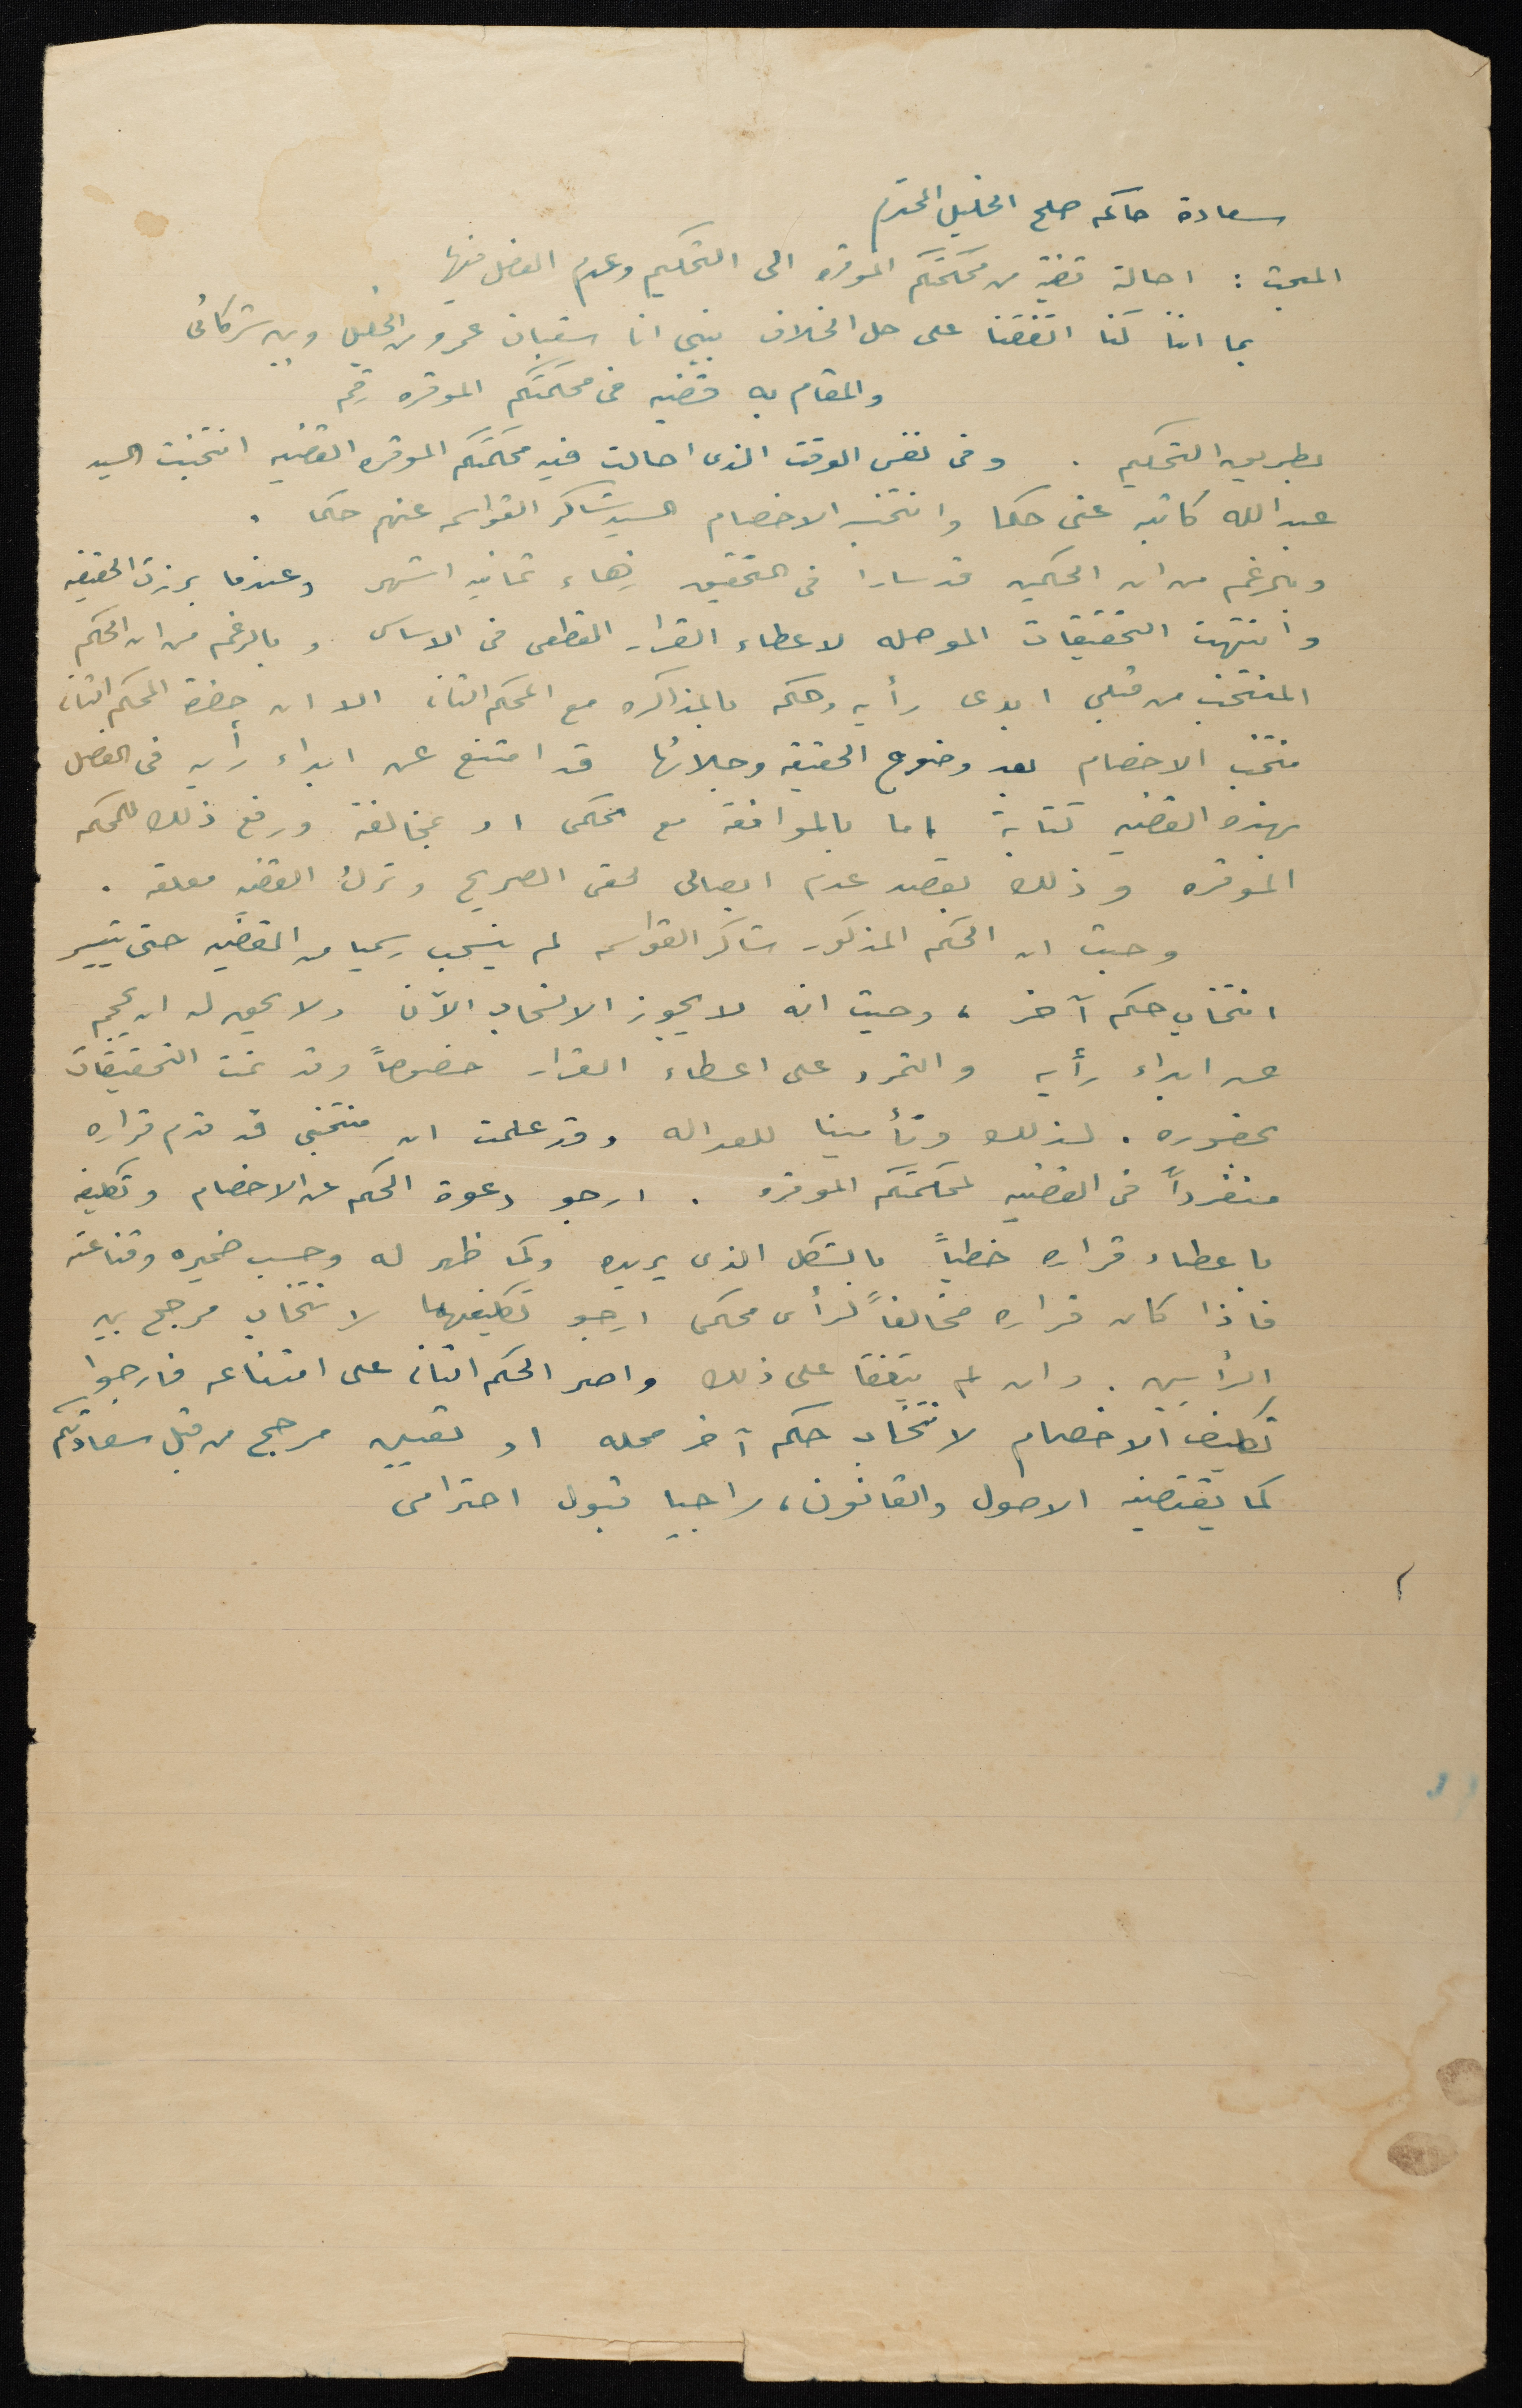 سعادة حاكم صلح الخليل المحترم
المبحث : احالة قضية من محكمتكم الموقره الى التحكيم وعدم الفصل فيها .
بما اننا كنا اتفقنا على حل الخلاف بيني انا شعبان عمرو من الخليل وبين شركائى
والمقام به قضيه فى محكمتكم الموقره رقم
بطريق التحكيم . وفى نفس الوقت الذى احالت فيه محكمتكم الموقره القضيه انتخبت السيد
عبد الله كاتبه عنى حكما وانتخب الاخصام السيد شاكر القواسمه عنهم حكما .
وبالرغم من ان الحكمين قد سارا فى التحقيق زهاء ثمانية اشهر وعندما برزت الحقيقه
وانتهت التحقيقات الموصله لاعطاء القرار القطعى فى الاساس وبالرغم من ان الحكم
المنتخب من قبلي ابدى رأيه وحكم بالمذاكره مع المحكم الثانى الا ان حضرة المحكم الثانى
منتخب الاخصام بعد وضوح الحقيقه وجلائها قد امتنع عن ابداء رأيه فى الفصل
بهذه القضيه كتابة اما بالموافقة مع محكمى او بمخالفة ورفع ذلك للمحكمه
الموقره وذلك بقصد عدم ايصالى لحقى الصريح وترك القضيه معلقه .
وحيث ان الحكم المذكور شاكر القواسمه لم ينسحب رسميا من القضيه حتى يتيسر
انتخاب حكم آخر ، وحيث انه لا يجوز الانسحاب الآن ولا يحق له ان يحجم
عن ابداء رأيه والتمرد على اعطاء القرار خصوصاً وقد تمت التحقيقات
بحضوره . لذلك وتأمينا للعداله وقد علمت ان منتخبى قد قدم قراره
منفرداً فى القضيه لمحكمتكم الموقره . ارجو دعوة الحكم عن الاخصام وتكليفه
باعطاء قراره خطياً بالشكل الذى يريده وكما ظهر له وحسب ضميره وقناعته
فاذا كان قراره مخالفاً لرأى محكمى ارجو تكليفهما لانتخاب مرجح بين
الرأيين . وان لم يتفقا على ذلك واصر الحكم الثانى على امتناعه فارجوا
تكليف الاخصام لانتخاب حكم آخر محله او تعيين مرجح من قبل سعادتكم
كما يقتضيه الاصول والقانون ، راجيا قبول احترامى